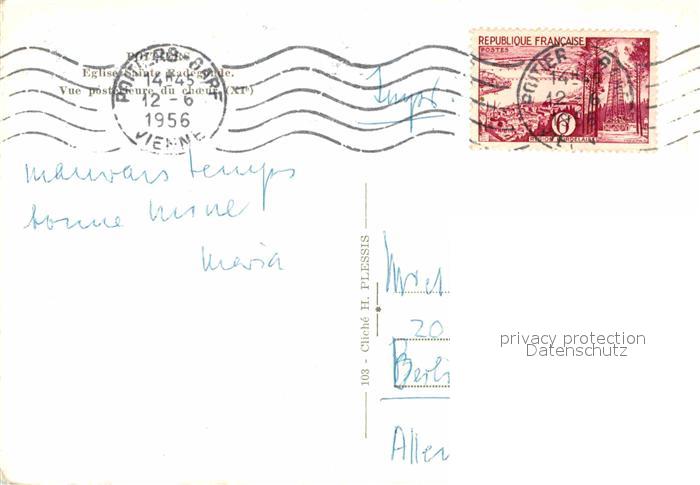 POITIERS
Eglise Sainte Radegonde.
Vue postérieure du chœur (XIe)
POITIERS-GARE
14H45
12-6
1956
VIENNE
REPUBLIQUE FRANÇAISE
POSTES
6F
POITIERS
14H45
12-6
mauvais temps
bonne mine
Maria
103 - Cliché H. PLESSIS
20
Berli
Allem
privacy protection
Datenschutz